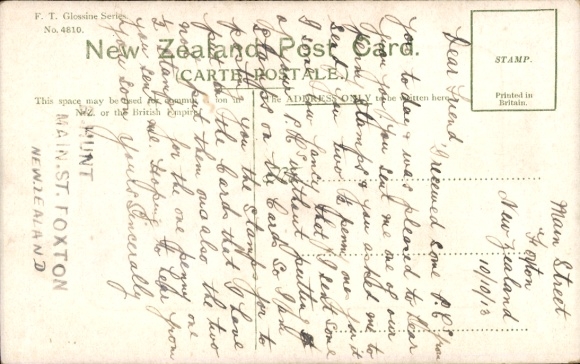 F. T. Glossine Series.
No. 4610.
New Zealand Post Card.
(CARTE POSTALE.)
STAMP.
Printed in
Britain.
This space may be used for communication in
N.Z. or the British Empire.
The ADDRESS ONLY to be written here.
Main Street
Foxton
New Zealand
10/10/13
Dear Friend I received some P.C. from
you to day & was pleased to hear
from you. You sent me one of our
penny stamps & you asked me to
send you two ½ penny ones for it
I sent you fancy that I sent some
of your P.C. without putting
stamps on the cards So I will
you the stamps for you to
put on the cards that I have
not put them on also the two
for the one penny one
you sent me Hoping to hear from
you soon Yours Sincerely
HUNT
MAIN. ST. FOXTON
NEW ZEALAND